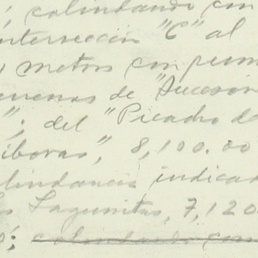 ; colindando con
intersección "C" al
metros con rumb
de "Sucesion
"; del "Picacho de
íboras", 8,100.00
olindancia indicad
Lagunitas, 7,120
; colindando con